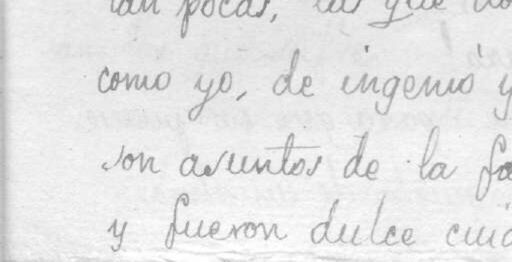 tan pocas, las que no
como yo, de ingenio y
son asuntos de la fa
y fueron dulce cuid